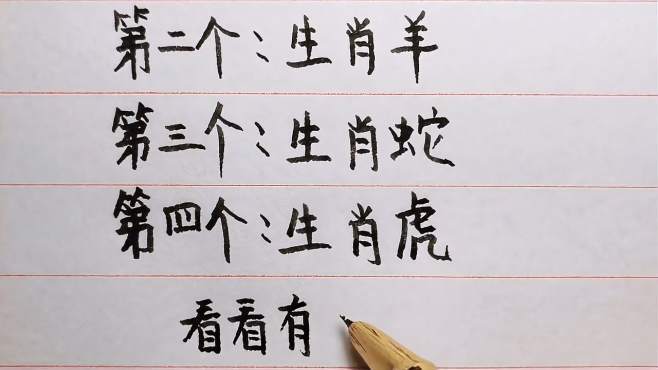 第二个：生肖羊
第三个：生肖蛇
第四个：生肖虎
看看有